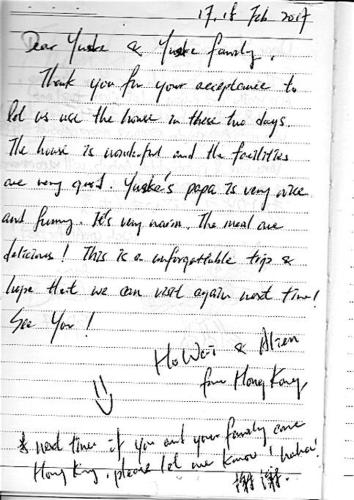 17, 18 Feb 2017
Dear Yuske & Yuske family,
Thank you for your acceptance to
let us use the house in these two days.
The house is wonderful and the facilities
are very good. Yuske's papa is very nice
and funny. It's very warm. The meal are
delicious! This is a unforgettable trip &
hope that we can visit again next time!
See You!
HoWai & Alien
from Hong Kong
* next time if you and your family come
Hong Kong, please let me know! haha!
謝謝.